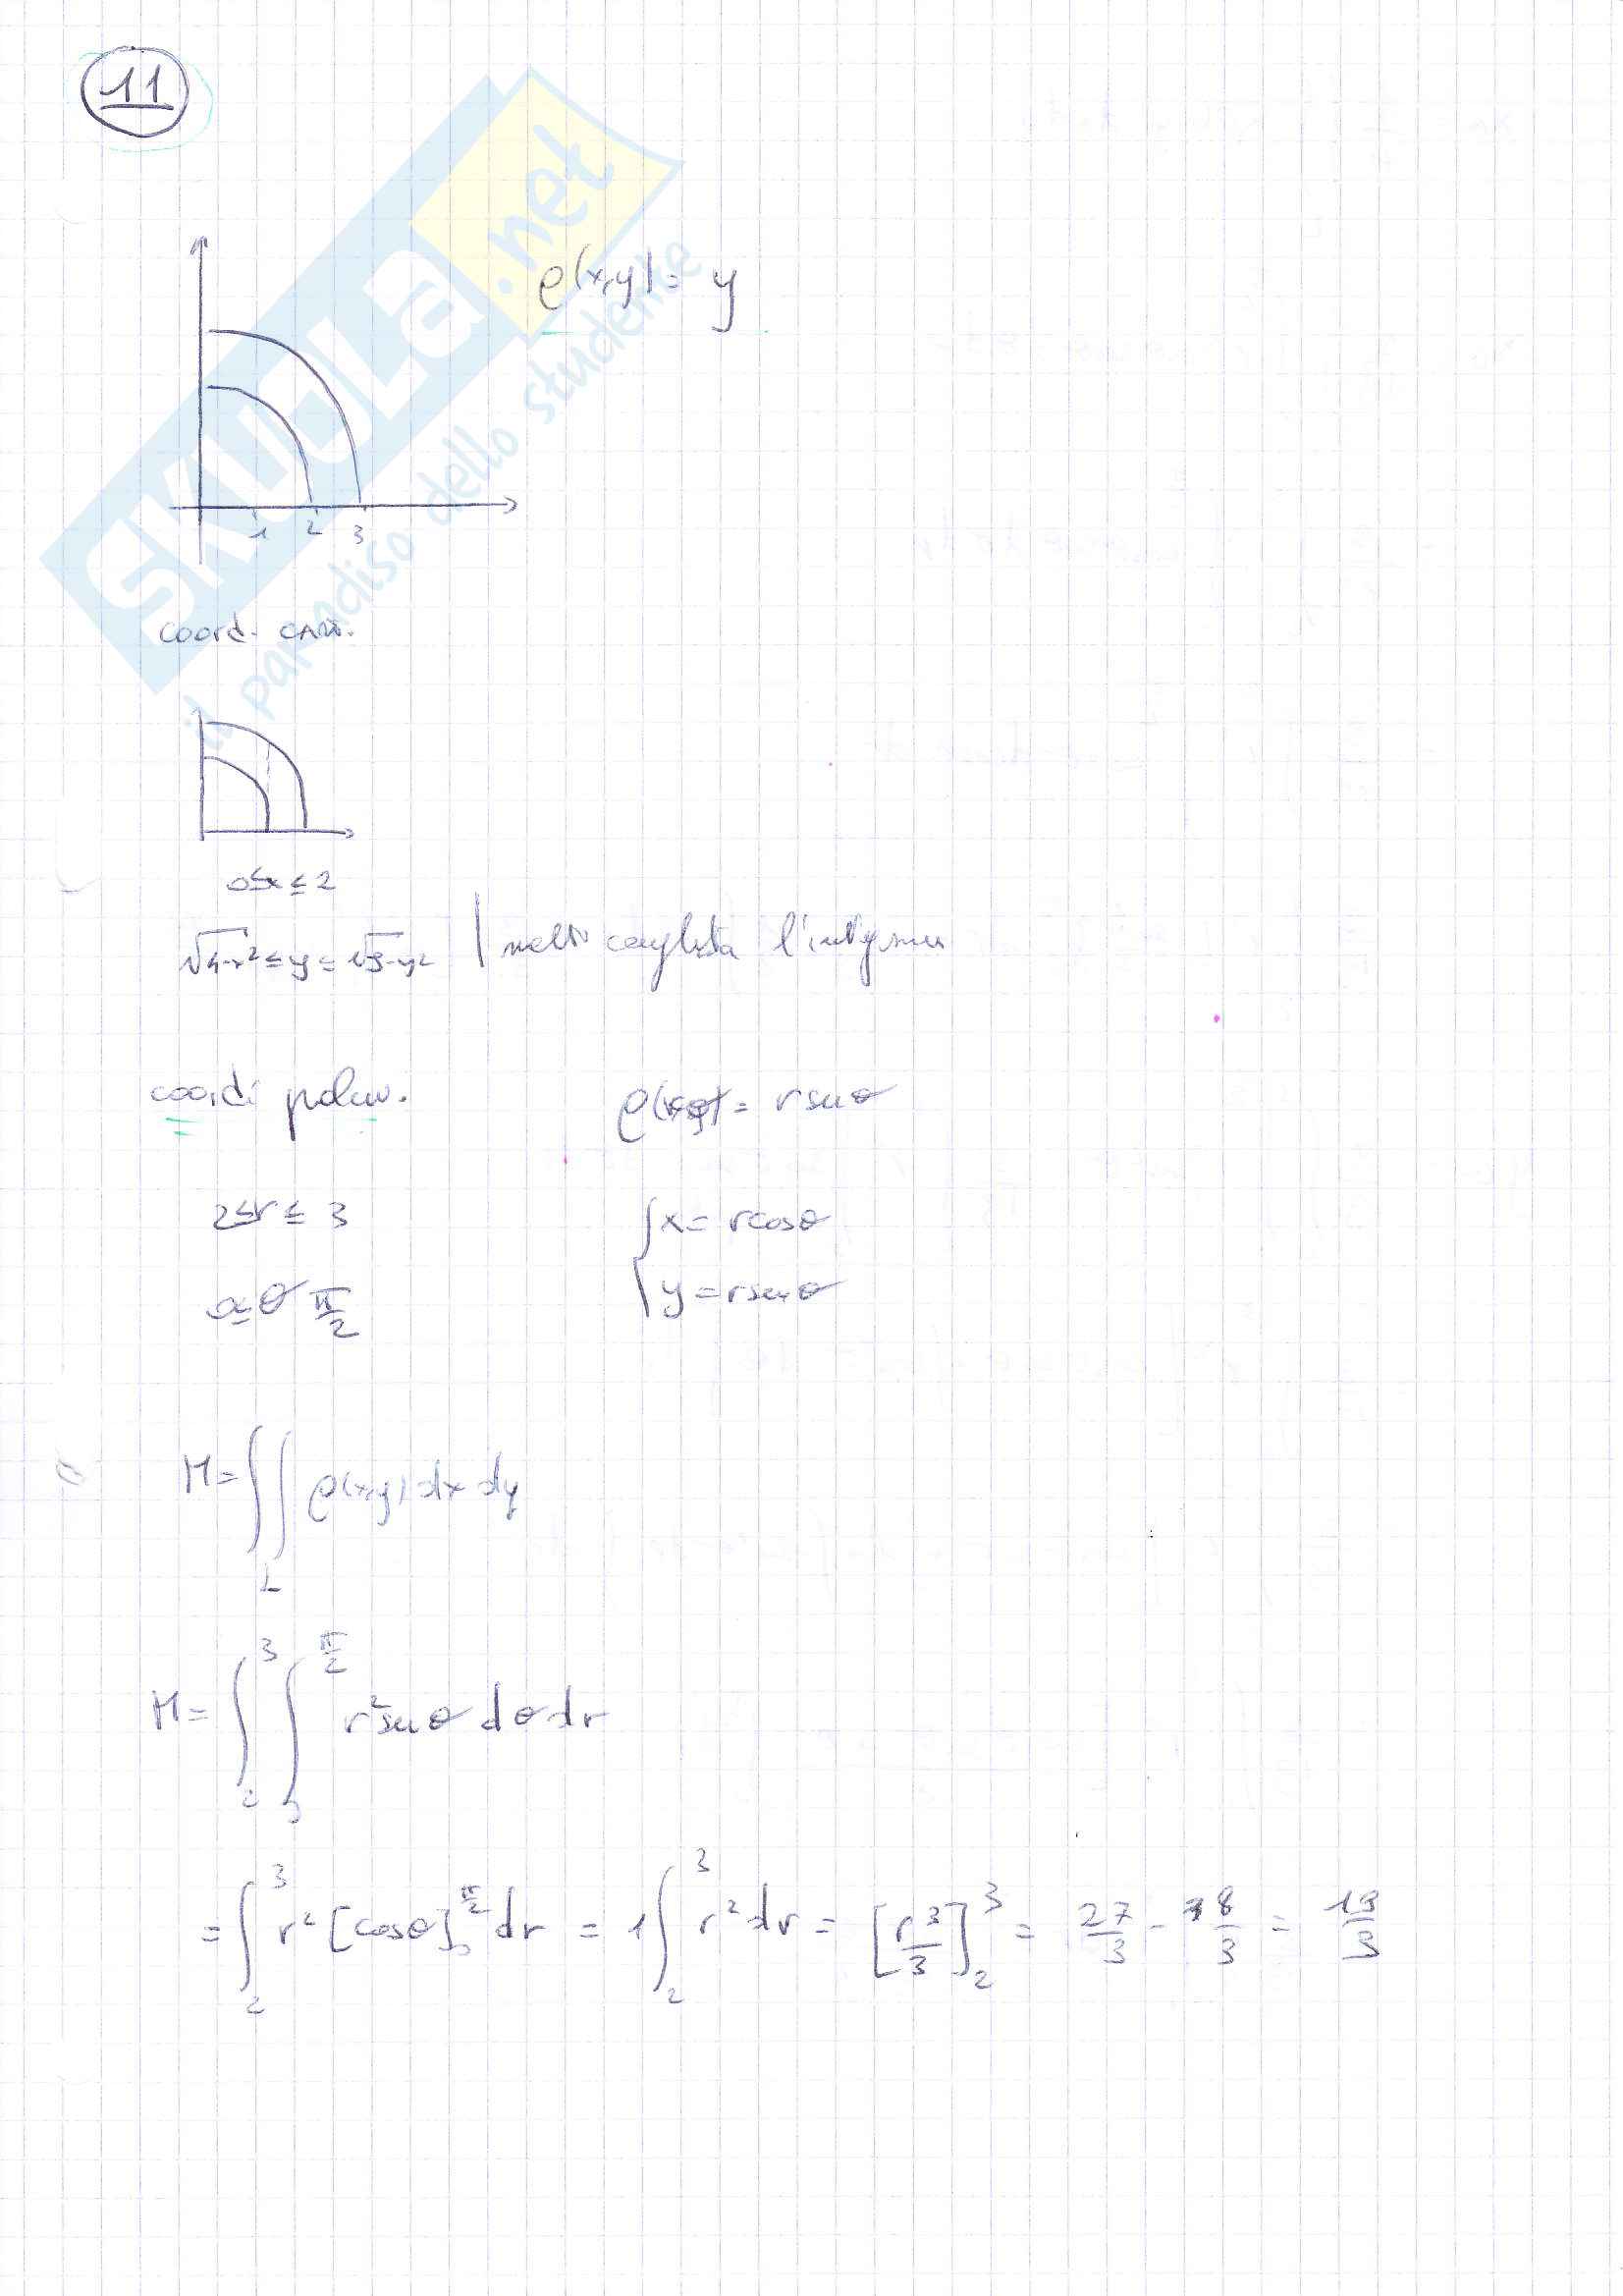 11
SKUOLA.net
il paradiso dello studente
ρ(x,y) = y
1 2 3
coord. CART.
0≤x≤2
√4-x² ≤ y ≤ √9-y² | molto complicata l'integrazione
coord. polar.
ρ(x,y) = r sen θ
2≤r≤3
{ x = r cos θ
0≤θ π/2
y = r sen θ
M = ∬_L ρ(x,y) dx dy
M = ∫_2^3 ∫_0^{π/2} r² sen θ dθ dr
= ∫_2^3 r² [cos θ]_0^{π/2} dr = 1 ∫_2^3 r² dr = [r³/3]_2^3 = 27/3 - 8/3 = 19/3